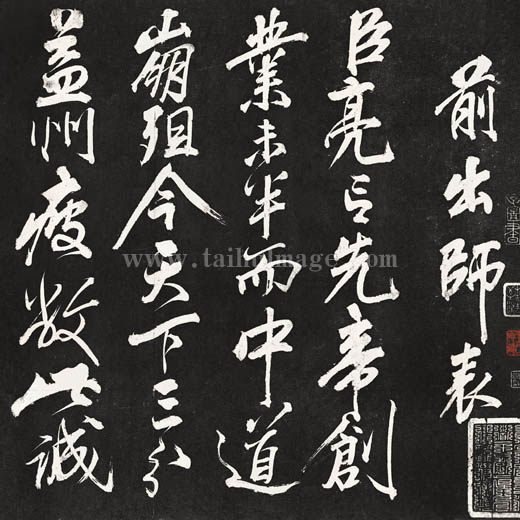 前出師表
臣亮言先帝創
業未半而中道
崩殂今天下三分
益州疲敝此誠
www.tailuimage.com